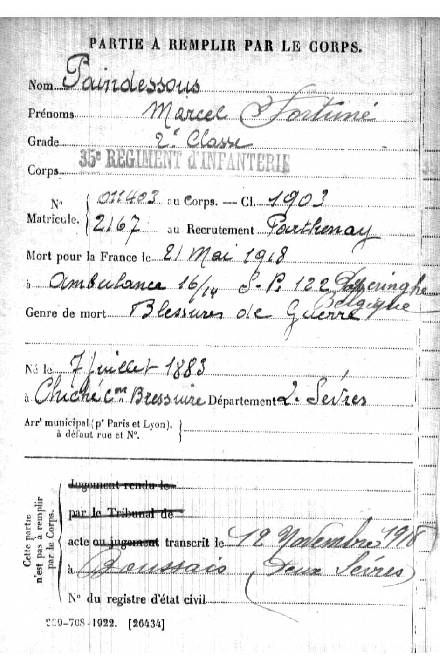 PARTIE À REMPLIR PAR LE CORPS.
Nom Paindessous
Prénoms Marcel Fortuné
Grade 2e Classe
Corps 35e REGIMENT d'INFANTERIE
N° Matricule. 011403 au Corps. — Cl. 1903
2167 au Recrutement Parthenay
Mort pour la France le 21 Mai 1918
à Ambulance 16/14 S. P. 122 Belgique
Genre de mort Blessures de Guerre
Né le 7 juillet 1883
à Chiché con Bressuire Département 2. Sèvres
Arrt municipal (pr Paris et Lyon), à défaut rue et N°.
Cette partie n'est pas à remplir par le Corps.
Jugement rendu le
par le Tribunal de
acte ou jugement transcrit le 12 Novembre 1918
à Boussais (Deux Sèvres)
N° du registre d'état civil
-708-1922. [26434]